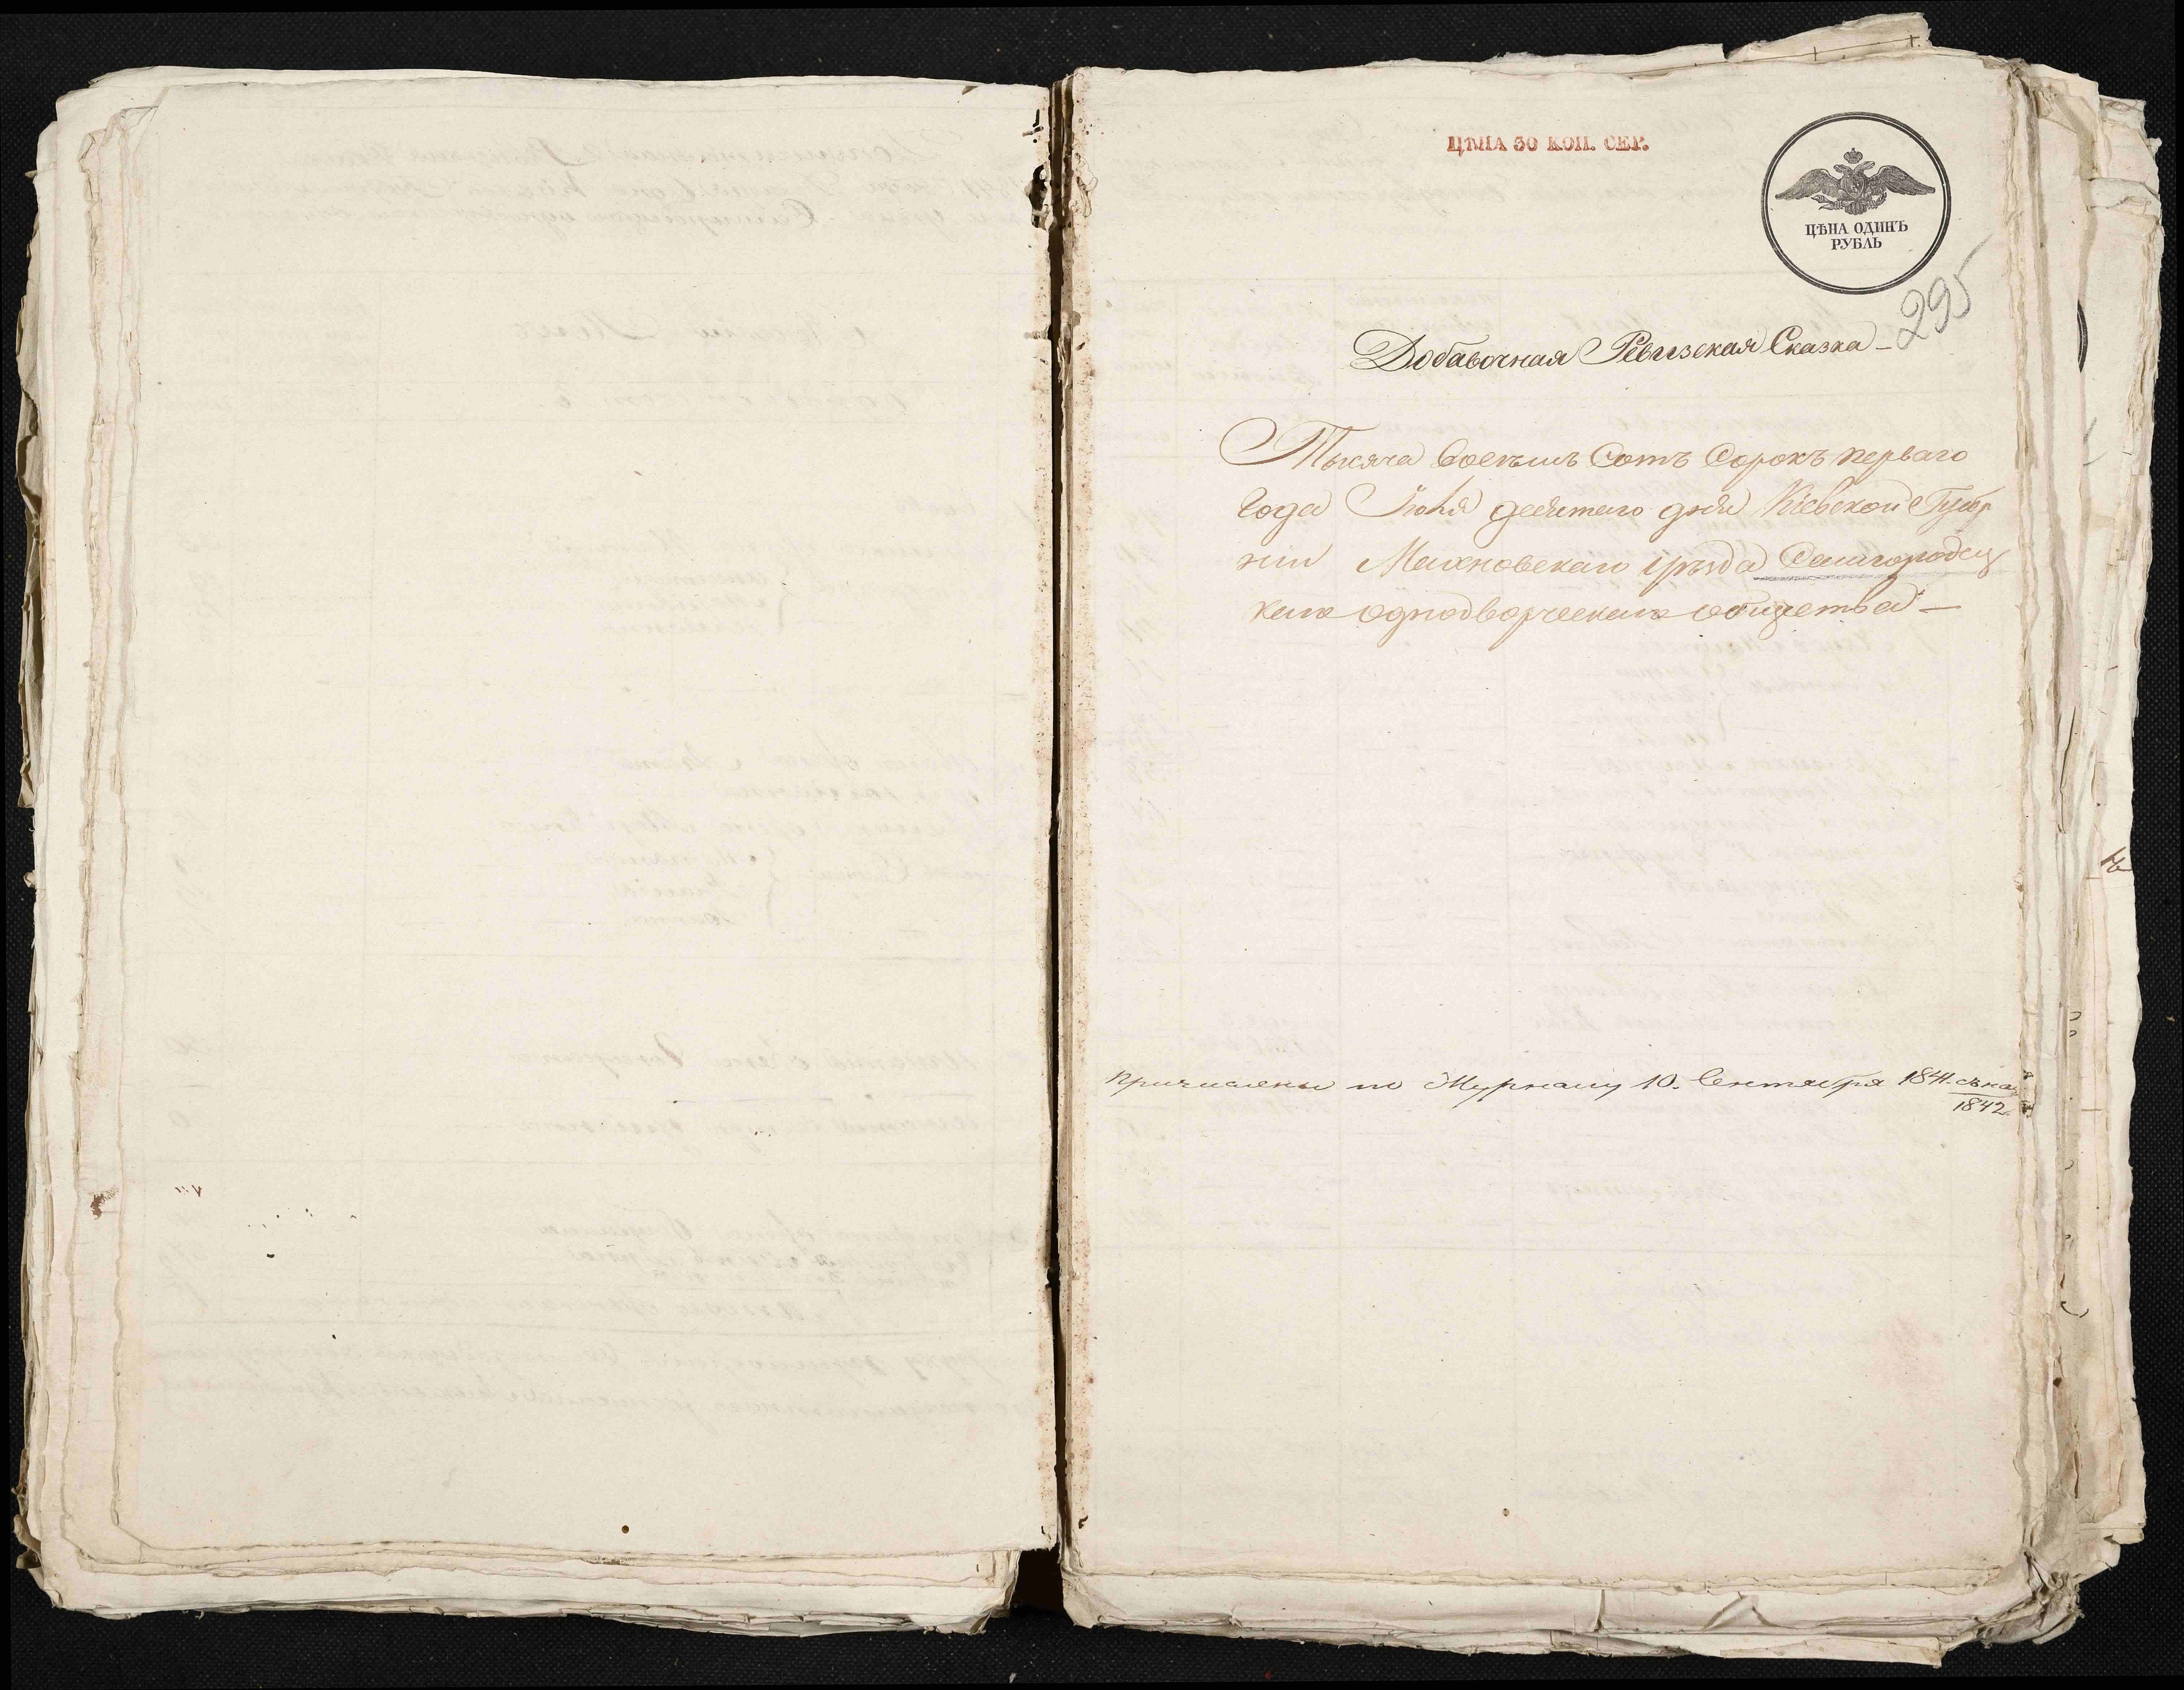 ЦѢНА 50 КОП. СЕР.
ЦѢНА ОДИНЪ
РУБЛЬ
295
Добавочная Ревизская Сказка —
Тысяча Восемь Сотъ Сорокъ перваго
Года Iюня десятаго дня Кіевской Губер
ніи Махновскаго уѣзда Самгородец
каго однодворческаго общества —
Причислены по Журналу 10. Сентября 1841. съ
1842.